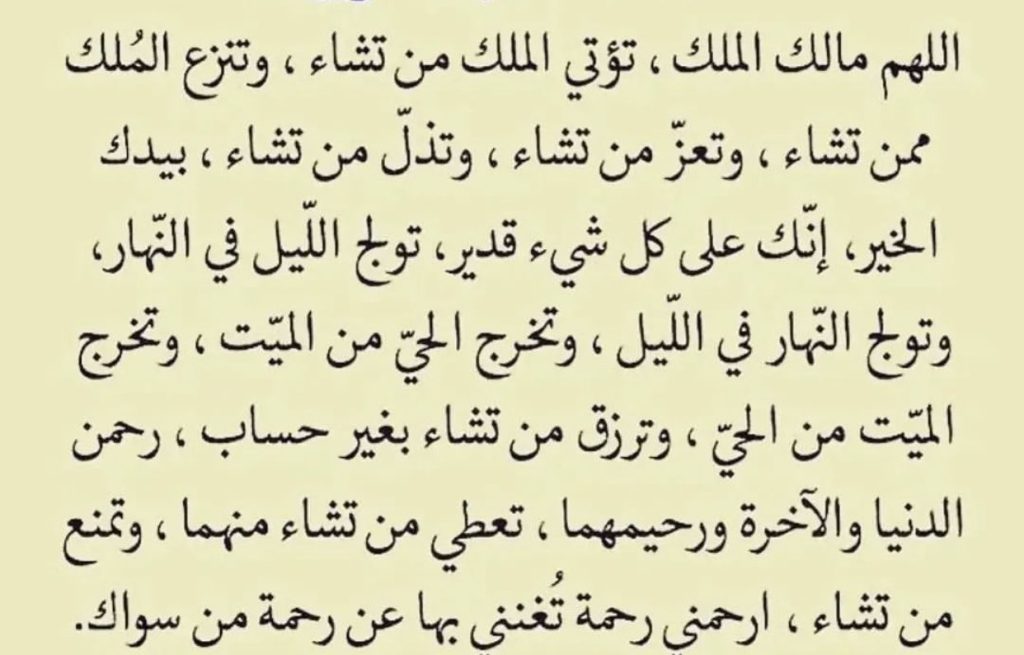 اللهم مالك الملك ، تؤتي الملك من تشاء ، وتنزع المُلك
ممن تشاء ، وتعزّ من تشاء ، وتذلّ من تشاء ، بيدك
الخير، إنّك على كل شيء قدير، تولج اللّيل في النّهار،
وتولج النّهار في اللّيل ، وتخرج الحيّ من الميّت ، وتخرج
الميّت من الحيّ ، وترزق من تشاء بغير حساب ، رحمن
الدنيا والآخرة ورحيمهما ، تعطي من تشاء منهما ، وتمنع
من تشاء ، ارحمني رحمة تُغنني بها عن رحمة من سواك.